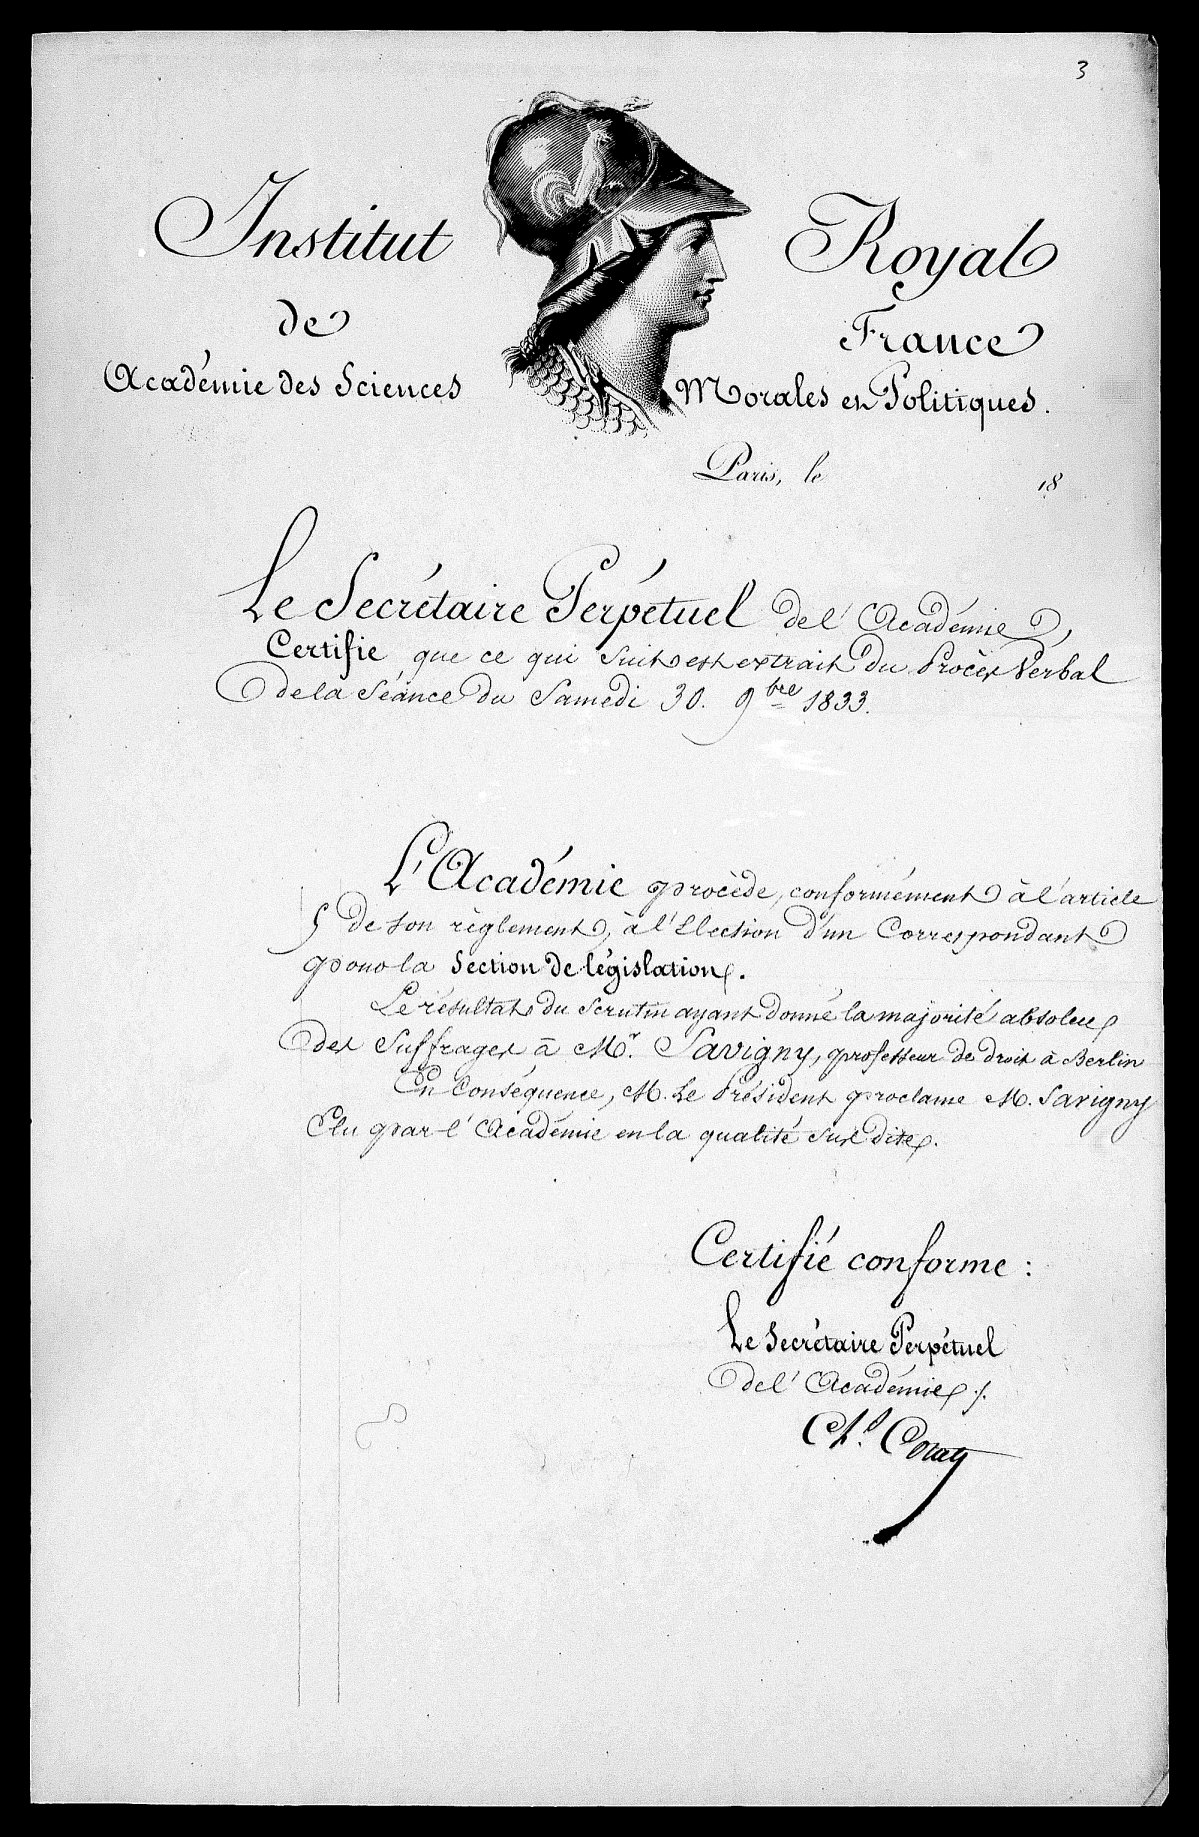 3
Institut Royal
de France
Académie des Sciences Morales et Politiques.
Paris, le 18
Le Secrétaire Perpétuel de l'Académie,
Certifie que ce qui suit est extrait du Procès Verbal
de la Séance du Samedi 30. 9bre 1833.
L'Académie procède, conformément à l'article
5 de son règlement, à l'Election d'un Correspondant
pour la Section de législation.
Le résultat du Scrutin ayant donné la majorité absolue
des Suffrages à Mr. Savigny, professeur de droit à Berlin
En Conséquence, M. Le Président proclame M. Savigny
Elu par l'Académie en la qualité sus dite.
Certifié conforme :
Le Secrétaire Perpétuel
de l'Académie
Ch.s Comte